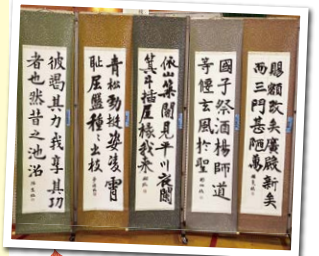 賜額改矣廣殿新矣
而三門甚陋萬
國子祭酒楊師道
等偃玄風於聖
依山築閣見平川夜闌
箕斗插屋椽我来
青松勁挺姿凌霄
恥屈盤種種出枝
彼竭其力我享其功
者也然昔之池沼